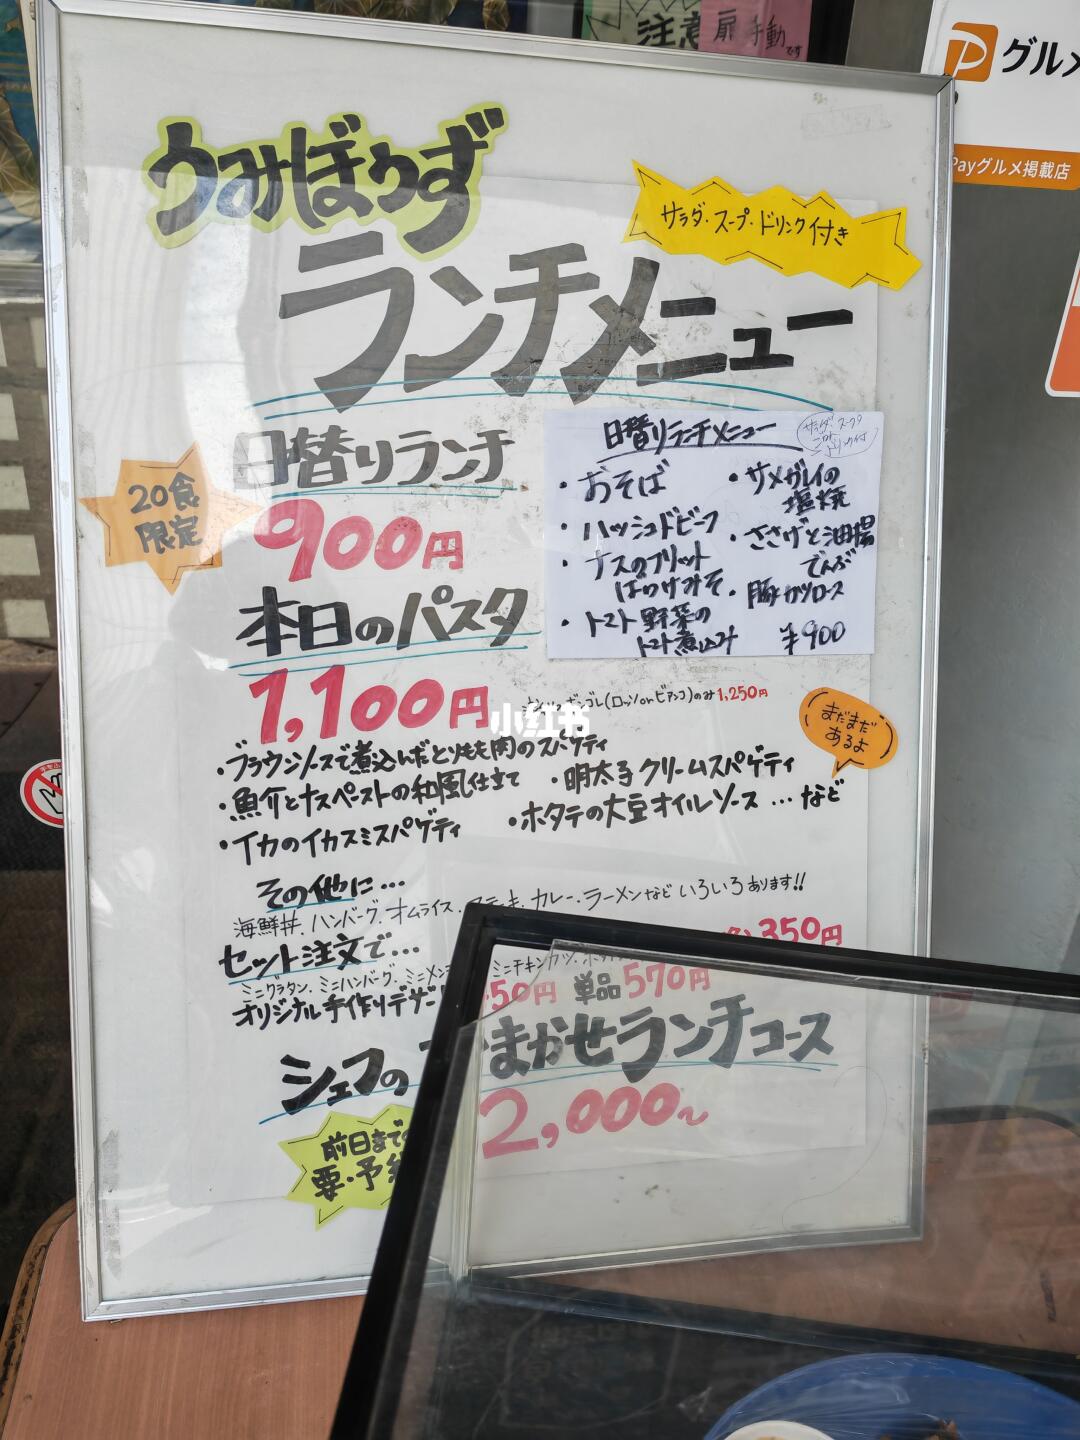 注意
扉 手動です
グルメ
Payグルメ掲載店
うみぼうず
サラダ・スープ・ドリンク付き
ランチメニュー
日替りランチ
20食
限定
900円
日替りランチメニュー
・おそば
・ハッシュドビーフ
・ナスのフリット
ばっけみそ
・トマト野菜の
トマト煮込み
・サメガレイの
塩焼
・ささげと油揚
でんぶ
・豚カツロース
¥900
本日のパスタ
1,100円
ボンゴレ(ロッソorビアンコ)のみ1,250円
まだまだ
あるよ
小红书
・ブラウンソースで煮込んだとりもも肉のスパゲティ
・魚介とナスペーストの和風仕立て
・明太子クリームスパゲティ
・イカのイカスミスパゲティ
・ホタテの大豆オイルソース…など
その他に…
海鮮丼、ハンバーグ、オムライス、ステーキ、カレー、ラーメンなどいろいろあります!!
セット注文で…
350円
ミニグラタン、ミニハンバーグ、ミニメンチ ミニチキンカツ、
オリジナル手作りデザート
50円 単品570円
シェフの まかせランチコース
2,000~
前日まで
要・予約